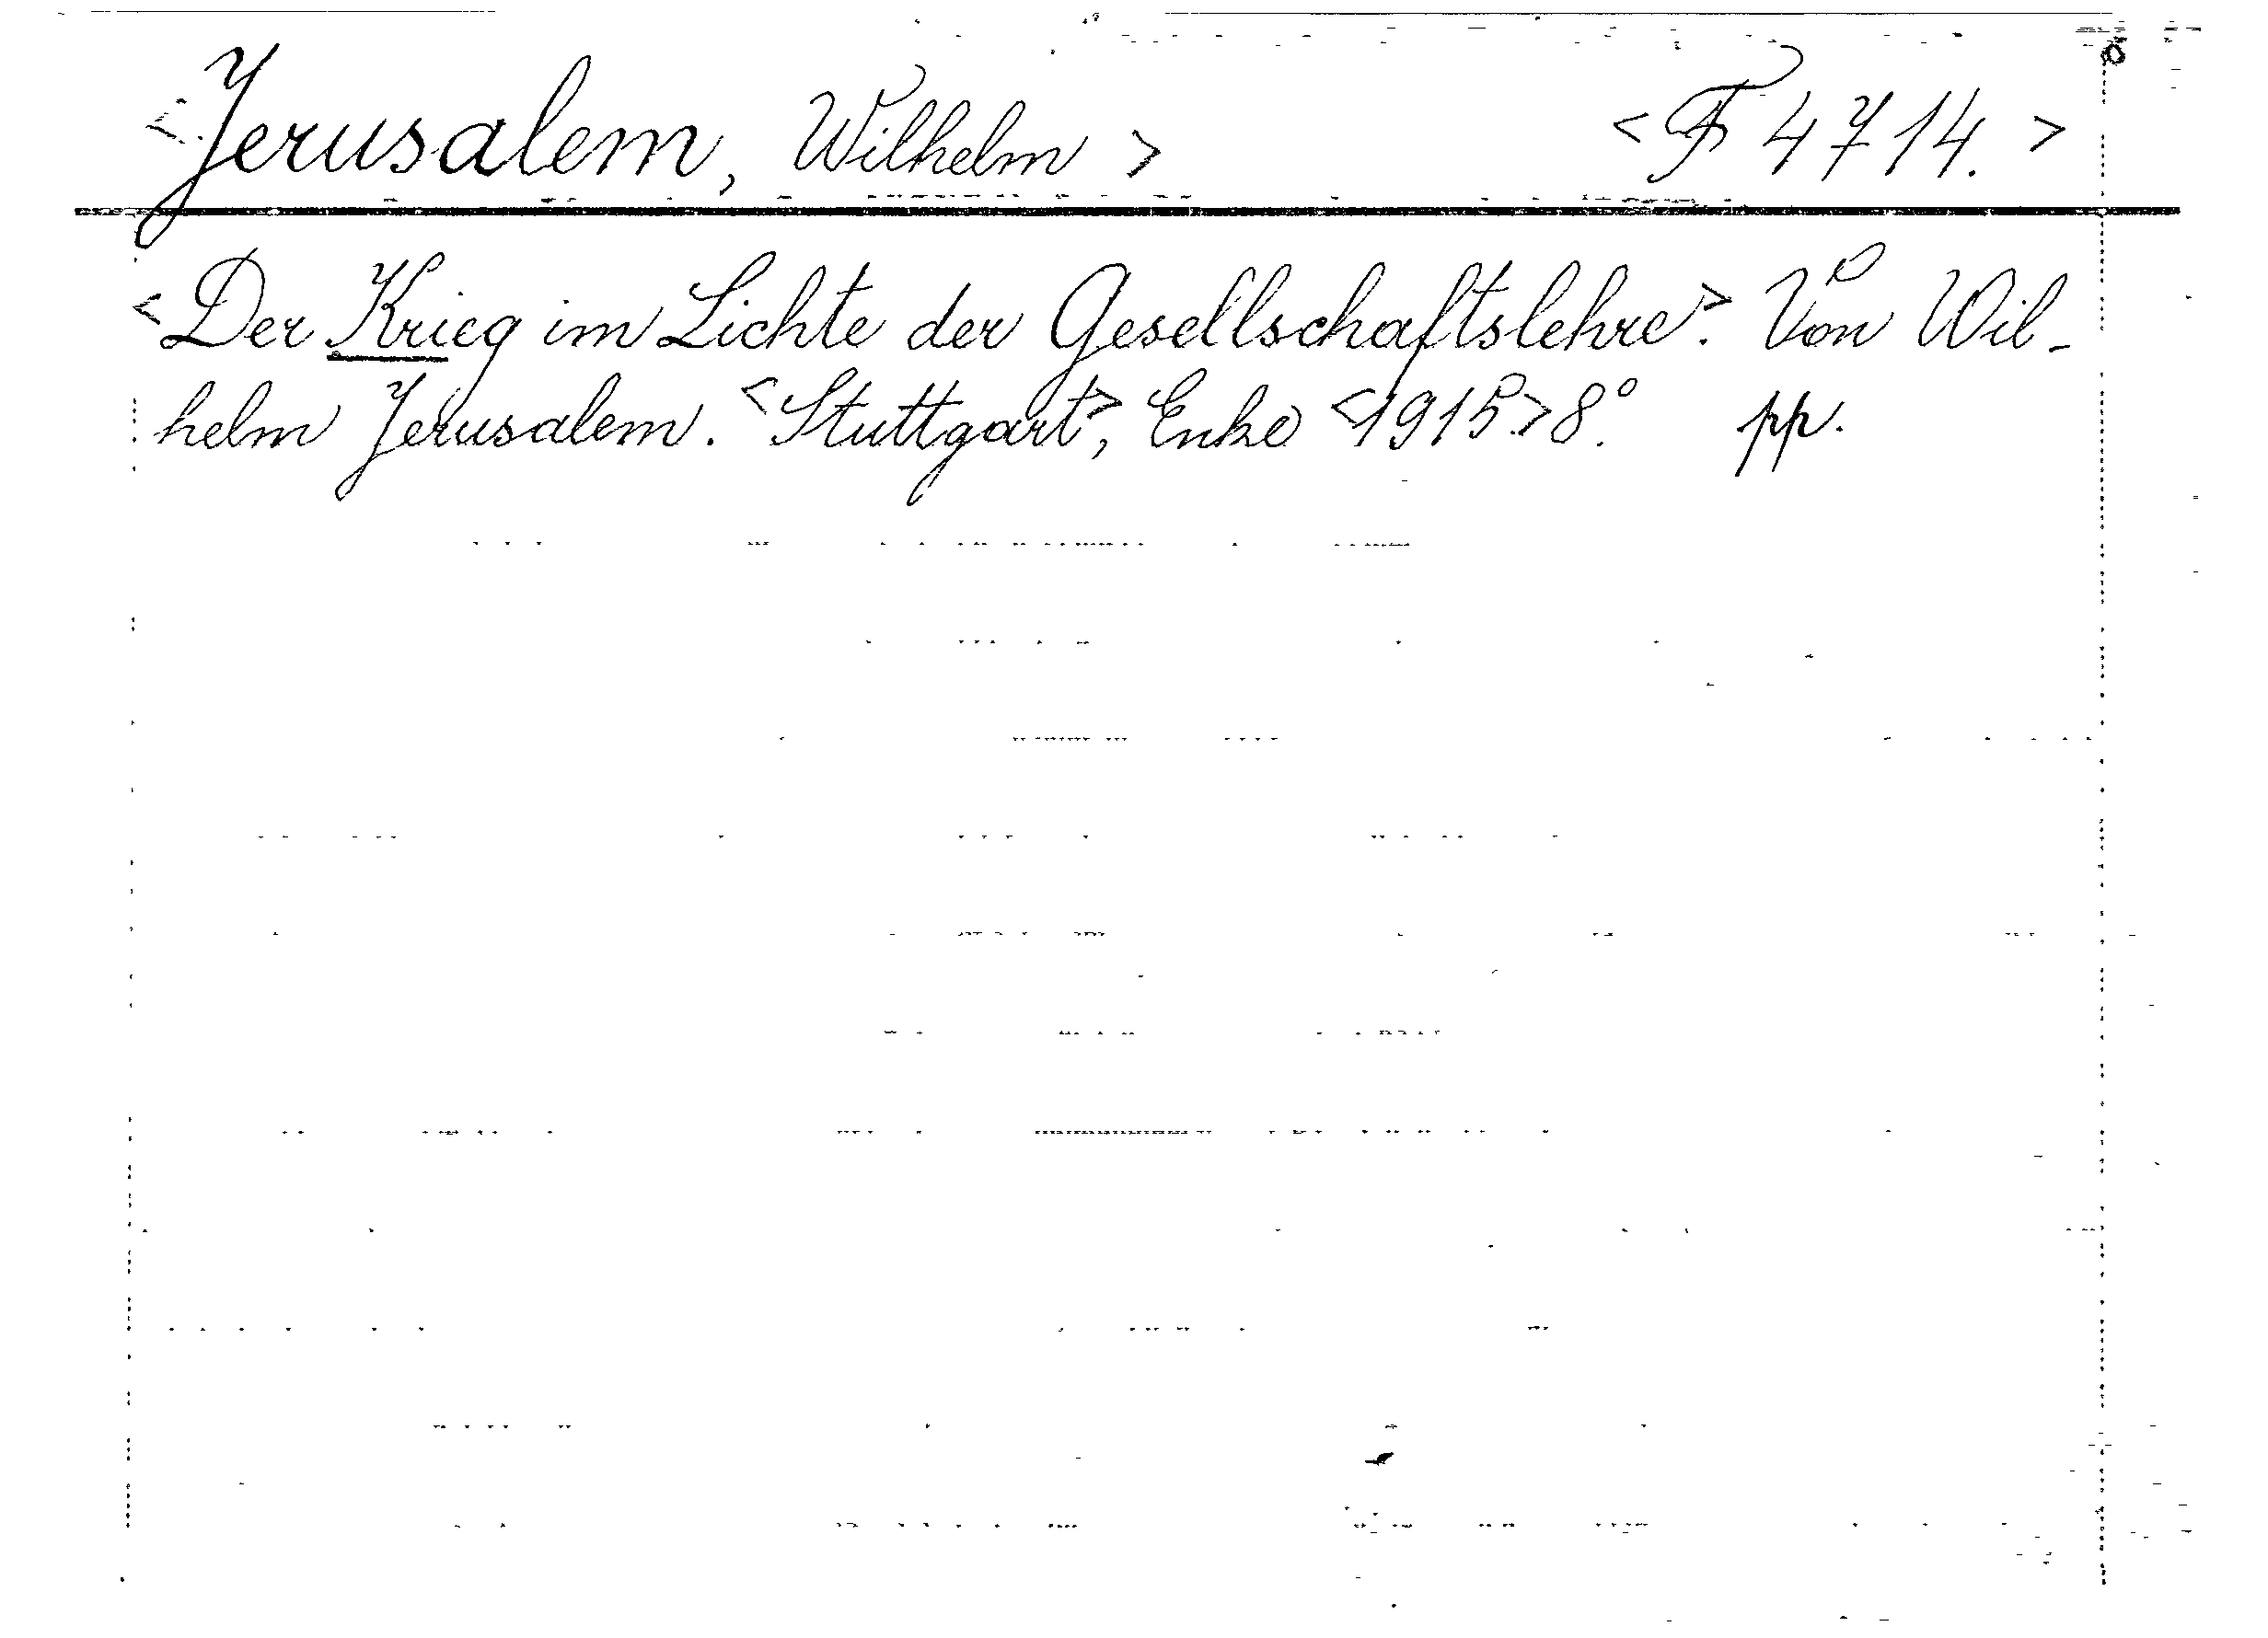 <Jerusalem, Wilhelm> <F 4714.>
<Der Krieg im Lichte der Gesellschaftslehre>. Von Wil-
helm Jerusalem. <Stuttgart>, Enke <1915> 8°. pp.